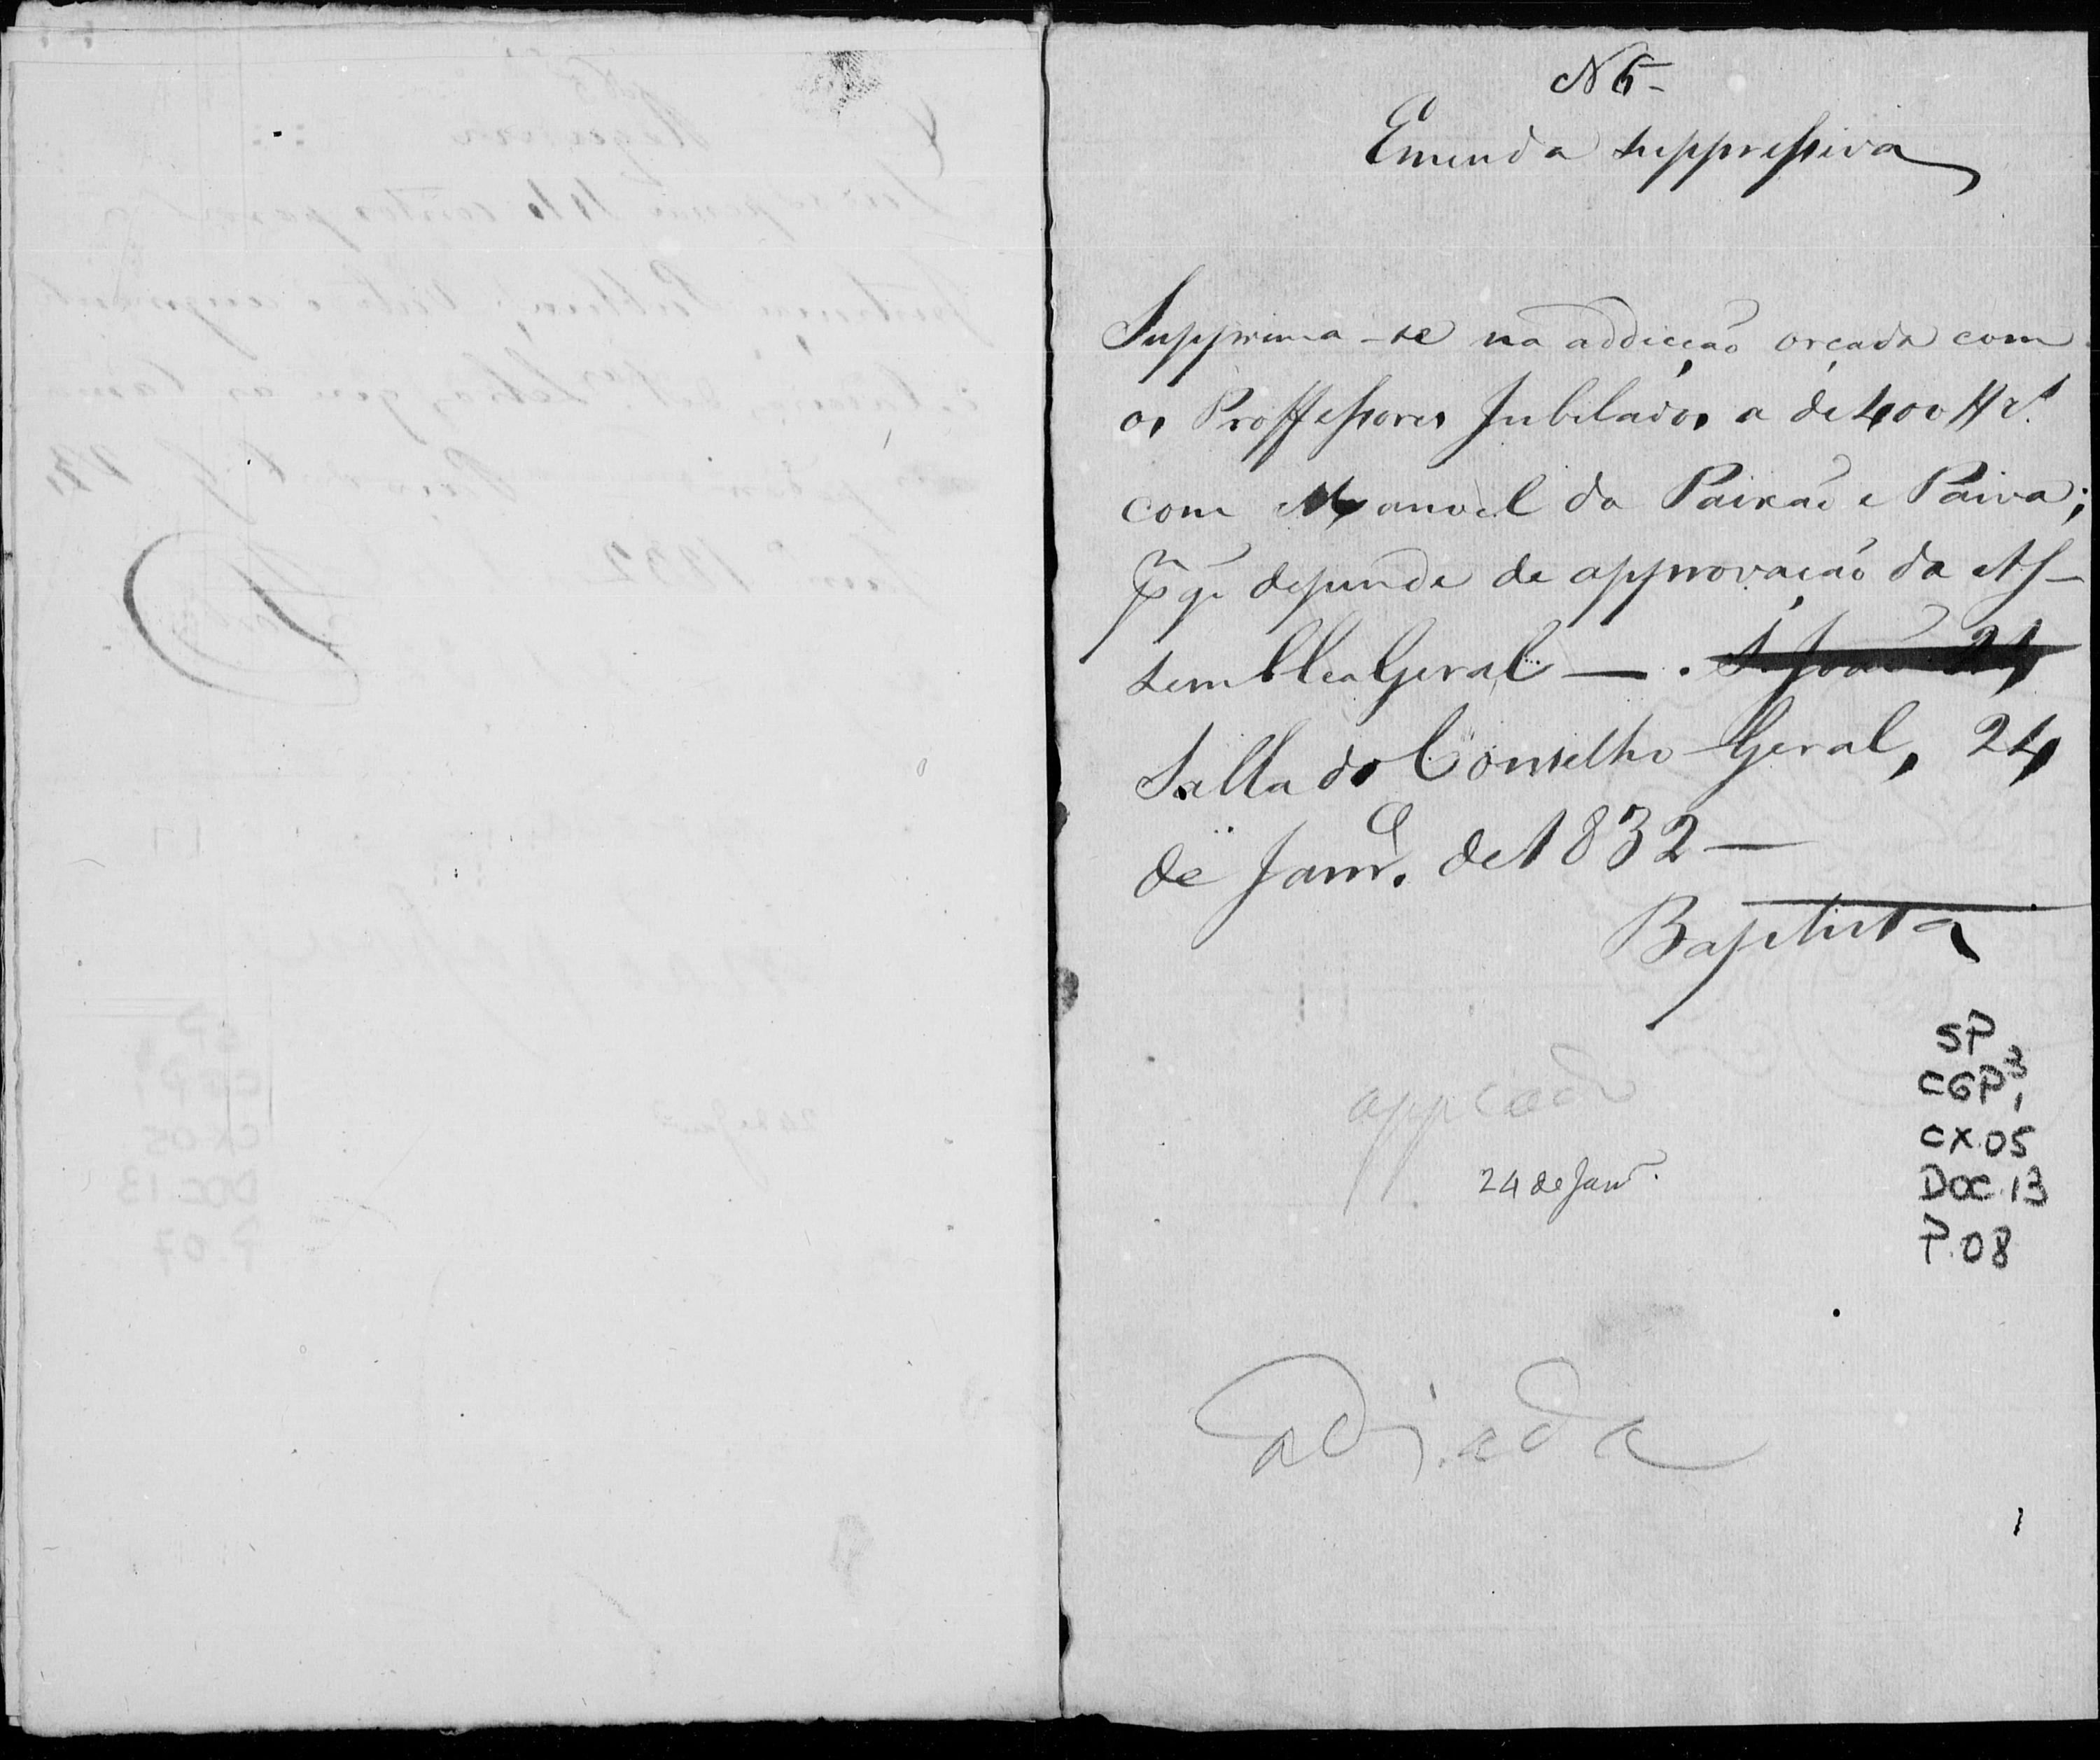 N 6-
Emenda suppressiva
Supprima-se na addicção orçada com
os Proffessores Jubilados a de 400 H rs.
com Manoel da Paixão e Paiva;
pr q. depende de approvação da As-
semblea Geral — . S. João 24
Salla do Conselho Geral, 24
de Janro. de 1832 —
Baptista
SP
CGP3,1
CX.05
DOC.13
P.08
24 de Janro.
adiada